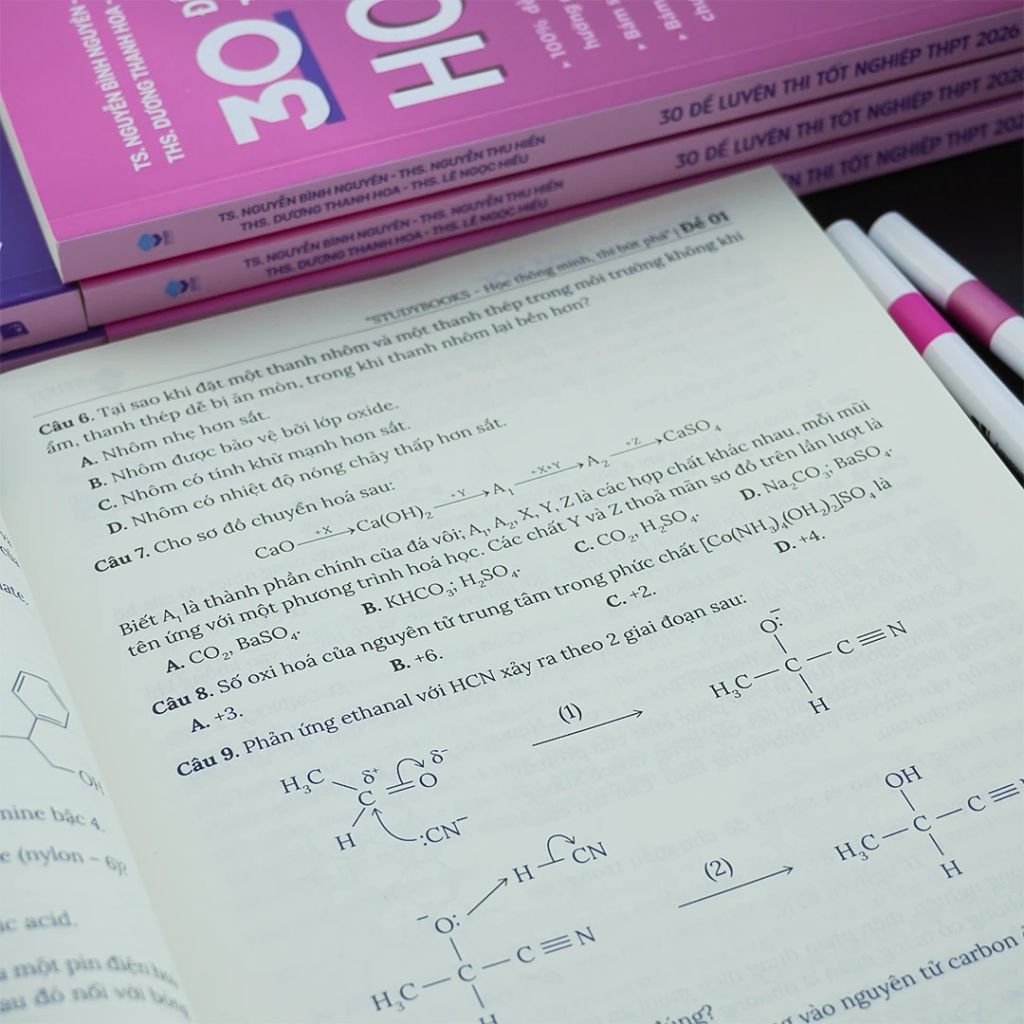 TS. NGUYỄN BÌNH NGUYÊN -
THS. DƯƠNG THANH HOA -
30
HO
100%
hướng
30 ĐỀ LUYỆN THI TỐT NGHIỆP THPT 2026
TS. NGUYỄN BÌNH NGUYÊN - THS. NGUYỄN THU HIỀN
THS. DƯƠNG THANH HOA - THS. LÊ NGỌC HIẾU
30 ĐỀ LUYỆN THI TỐT NGHIỆP THPT 2026
TS. NGUYỄN BÌNH NGUYÊN - THS. NGUYỄN THU HIỀN
THS. DƯƠNG THANH HOA - THS. LÊ NGỌC HIẾU
THI TỐT NGHIỆP THPT 202
"STUDYBOOKS - Học thông minh, thi bứt phá" | Đề 01
Câu 6. Tại sao khi đặt một thanh nhôm và một thanh thép trong môi trường không khí
ẩm, thanh thép dễ bị ăn mòn, trong khi thanh nhôm lại bền hơn?
A. Nhôm nhẹ hơn sắt.
B. Nhôm được bảo vệ bởi lớp oxide.
C. Nhôm có tính khử mạnh hơn sắt.
D. Nhôm có nhiệt độ nóng chảy thấp hơn sắt.
Câu 7. Cho sơ đồ chuyển hoá sau:
CaO +X→ Ca(OH)₂ +Y→ A₁ +X+Y→ A₂ +Z→ CaSO₄
Biết A₁ là thành phần chính của đá vôi; A₁, A₂, X, Y, Z là các hợp chất khác nhau, mỗi mũi
tên ứng với một phương trình hoá học. Các chất Y và Z thoả mãn sơ đồ trên lần lượt là
A. CO₂, BaSO₄. B. KHCO₃; H₂SO₄. C. CO₂, H₂SO₄. D. Na₂CO₃; BaSO₄.
Câu 8. Số oxi hoá của nguyên tử trung tâm trong phức chất [Co(NH₃)₄(OH₂)₂]SO₄ là
A. +3. B. +6. C. +2. D. +4.
Câu 9. Phản ứng ethanal với HCN xảy ra theo 2 giai đoạn sau:
H₃C C δ⁺ O δ⁻ H :CN⁻ (1) O:⁻ H₃C C C≡N H
⁻O: H CN H₃C C C≡N H (2) OH H₃C C C≡N H
đúng?
vào nguyên tử carbon
OH
amine bậc 4.
(nylon - 6
ic acid.
một pin điện
au đó nối với